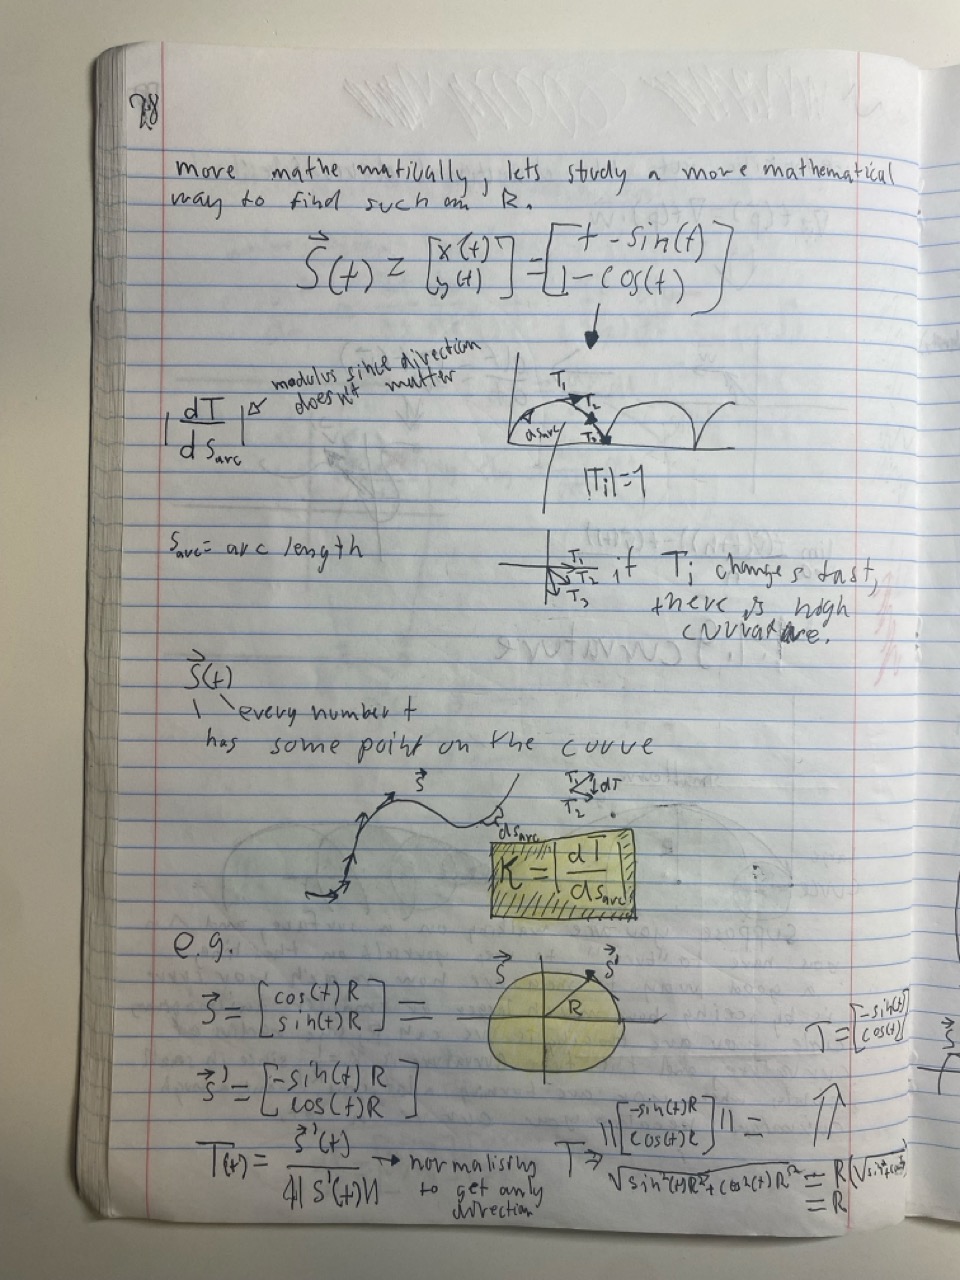 28
more mathematically, lets study a more mathematical
way to find such an R.
S⃗(t) = [x(t) y(t)] = [t - sin(t) 1 - cos(t)]
modulus since direction
doesn't matter
|dT/ds_arc|
T₁ T₂ T₃
ds_arc
|Tᵢ|=1
s_arc = arc length
T₁ T₂ T₃
if Tᵢ changes fast,
there is high
curvature.
S⃗(t)
every number t
has some point on the curve
S⃗
ds_arc
T₁ T₂ dT
K = |dT/ds_arc|
e.g.
S⃗ = [cos(t)R sin(t)R] =
S⃗ R S⃗'
T = [-sin(t) cos(t)]
S⃗' = [-sin(t)R cos(t)R]
T(t) = S⃗'(t)/||S'(t)|| → normalising
to get only
direction
T ⇒ ||[-sin(t)R cos(t)R]|| =
√sin²(t)R²+cos²(t)R² = R(√sin²+cos²
= R